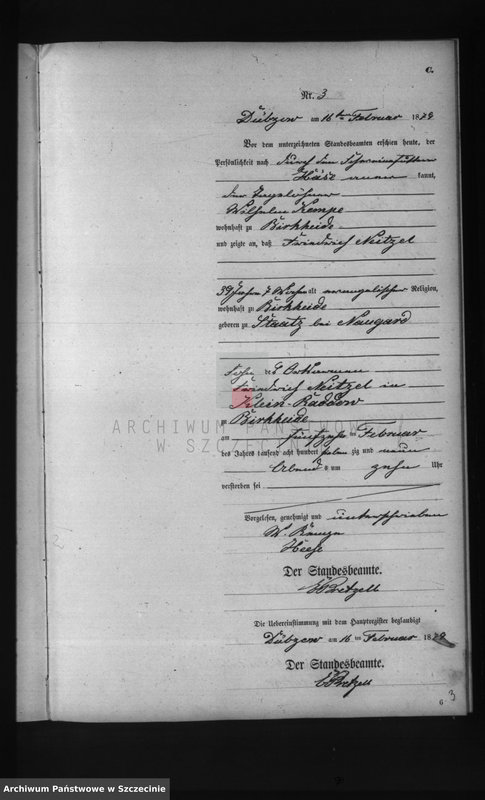 C.
Nr. 3
Dübzow am 16ten Februar 1879
Vor dem unterzeichneten Standesbeamten erschien heute, der
Persönlichkeit nach durch den
kannt,
der Tagelöhner
Wilhelm Kempe
wohnhaft zu Birkheide
und zeigte an, daß Friedrich Neitzel
39 Jahre 7 Wochen alt evangelischer Religion,
wohnhaft zu Birkheide
geboren zu Staatz bei Naugard
Sohn des
Friedrich Neitzel in
Klein-Raddow
zu Birkheide
am fünfzehnten Februar
des Jahres tausend acht hundert sieben zig und neun
Abends um zehn Uhr
verstorben sei
Vorgelesen, genehmigt und unterschrieben
W.
Heese
Der Standesbeamte.
Pretzell
Die Uebereinstimmung mit dem Hauptregister beglaubigt
Dübzow am 16ten Februar 1879
Der Standesbeamte.
Pretzell
6
3
ARCHIWUM PAŃSTWOWE
W SZCZECINIE
Archiwum Państwowe w Szczecinie